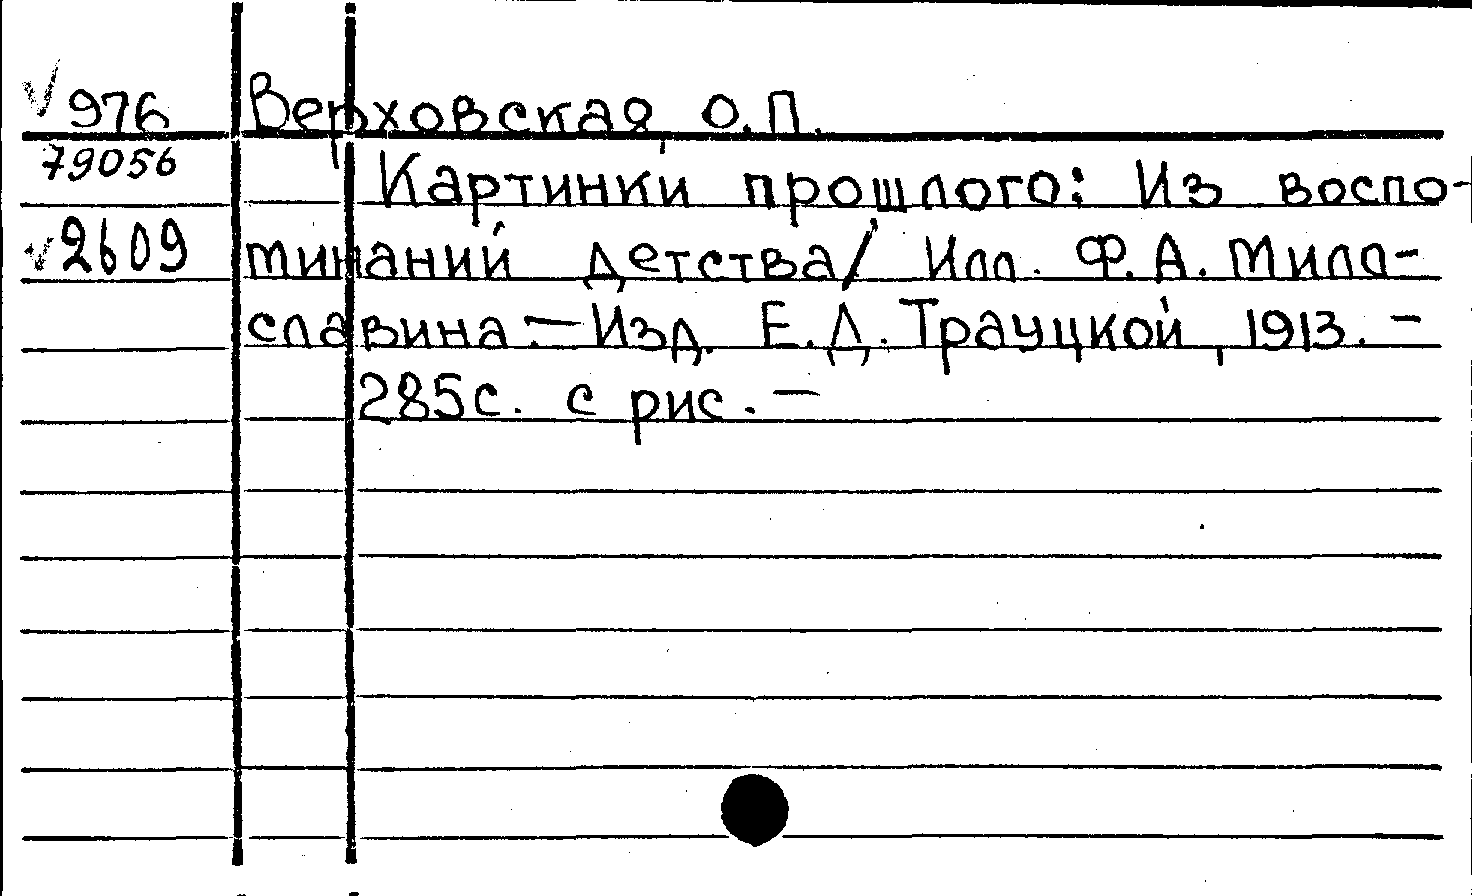 √976 Верховская, О.П.
79056
Картинки прошлого: Из воспо-
√2609 минаний детства/ Илл. Ф.А. Мила-
славина. — Изд. Е.Д. Трауцкой, 1913. —
285с. с рис. —